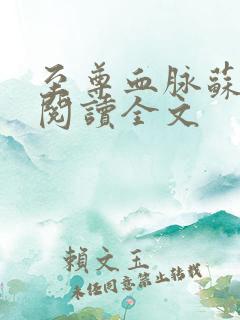 至尊血脉蘇
閱讀全文
賴文玉
未经同意禁止转载